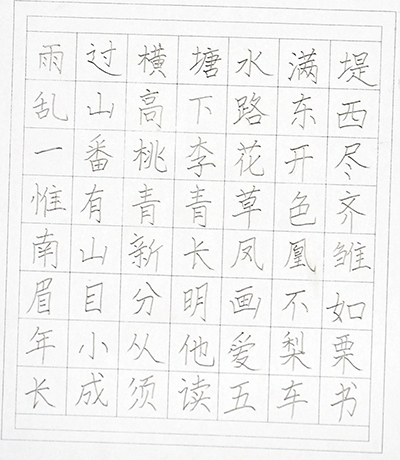 雨过横塘水满堤
乱山高下路东西
一番桃李花开尽
惟有青青草色齐
南山新长凤凰雏
眉目分明画不如
年小从他爱梨栗
长成须读五车书